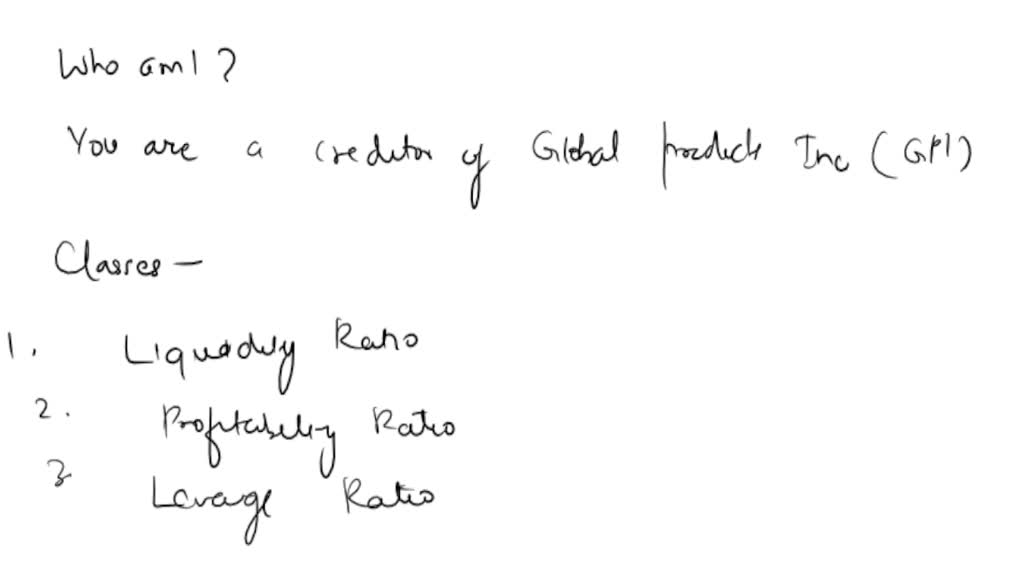 Who am I ?
You are a creditor of Global products Inc (GPI)
Classes -
1. Liquidity Ratio
2. Profitability Ratio
3 Lavage Ratio